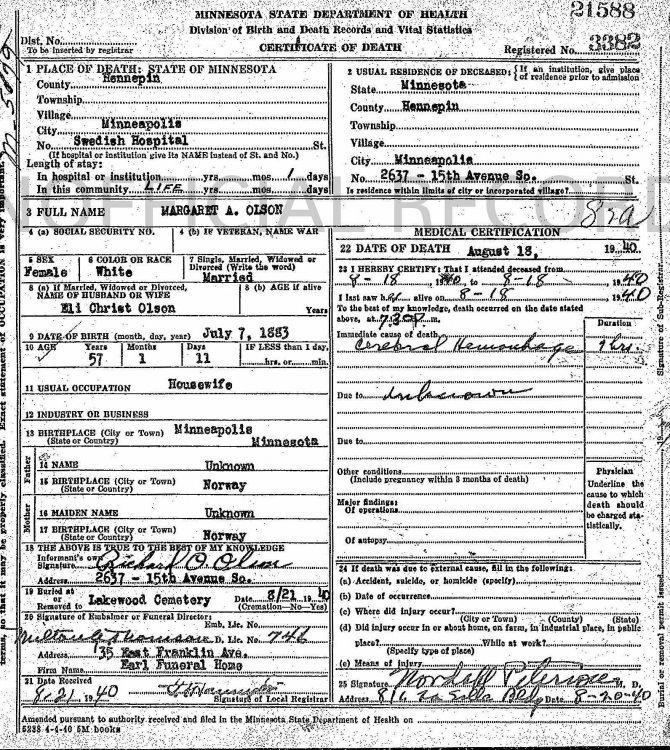 21588
MINNESOTA STATE DEPARTMENT OF HEALTH
Division of Birth and Death Records and Vital Statistics
CERTIFICATE OF DEATH
Dist. No.
To be inserted by registrar
Registered No. 3382
1 PLACE OF DEATH: STATE OF MINNESOTA
County Hennepin
Township
Village
City Minneapolis
No. Swedish Hospital St.
(If hospital or institution give its NAME instead of St. and No.)
Length of stay:
In hospital or institution yrs. mos. 1 days
In this community LIFE yrs. mos. days
2 USUAL RESIDENCE OF DECEASED: {If an institution, give place of residence prior to admission
State Minnesota
County Hennepin
Township
Village
City Minneapolis
No. 2637 - 15th Avenue So. St.
Is residence within limits of city or incorporated village?
3 FULL NAME MARGARET A. OLSON
4 (a) SOCIAL SECURITY NO. 4 (b) IF VETERAN, NAME WAR
5 SEX Female
6 COLOR OR RACE White
7 Single, Married, Widowed or Divorced (Write the word) Married
8 (a) If Married, Widowed or Divorced, NAME OF HUSBAND OR WIFE
Eli Christ Olson
8 (b) AGE if alive
Years
9 DATE OF BIRTH (month, day, year) July 7, 1883
10 AGE Years Months Days IF LESS than 1 day,
57 1 11 hrs. or min.
11 USUAL OCCUPATION Housewife
12 INDUSTRY OR BUSINESS
13 BIRTHPLACE (City or Town) Minneapolis
(State or Country) Minnesota
Father
14 NAME Unknown
15 BIRTHPLACE (City or Town)
(State or Country) Norway
Mother
16 MAIDEN NAME Unknown
17 BIRTHPLACE (City or Town)
(State or Country) Norway
18 THE ABOVE IS TRUE TO THE BEST OF MY KNOWLEDGE
Informent's own Signature Richard O. Olson
Address 2637 - 15th Avenue So.
19 Buried at or Removed to Lakewood Cemetery Date 8/21 1940
(Cremation—No—Yes)
20 Signature of Embalmer or Funeral Director: Emb. Lic. No.
D. Lic. No. 746
Address 135 East Franklin Ave.
Firm Name Earl Funeral Home
21 Date Received
8/21 1940
Signature of Local Registrar
82a
MEDICAL CERTIFICATION
22 DATE OF DEATH August 18, 1940
23 I HEREBY CERTIFY: That I attended deceased from
8-18 1940, to 8-18 1940
I last saw her alive on 8-18 1940
To the best of my knowledge, death occurred on the date stated above, at 7:30P m.
Duration
Immediate cause of death
Cerebral Hemorrhage 9 hrs.
Due to unknown
Due to
Other conditions
(Include pregnancy within 3 months of death)
Major findings:
Of operations
Of autopsy
Physician
Underline the cause to which death should be charged statistically.
24 If death was due to external cause, fill in the following:
(a) Accident, suicide, or homicide (specify)
(b) Date of occurrence
(c) Where did injury occur?
(City or Town) (County) (State)
(d) Did injury occur in or about home, on farm, in industrial place, in public
place? While at work?
(Specify type of place)
(e) Means of injury
25 Signature Peterson M. D.
Address 816 La Salle Bldg Date 8-20-40
Amended pursuant to authority received and filed in the Minnesota State Department of Health on
5238 4-4-40 5M books